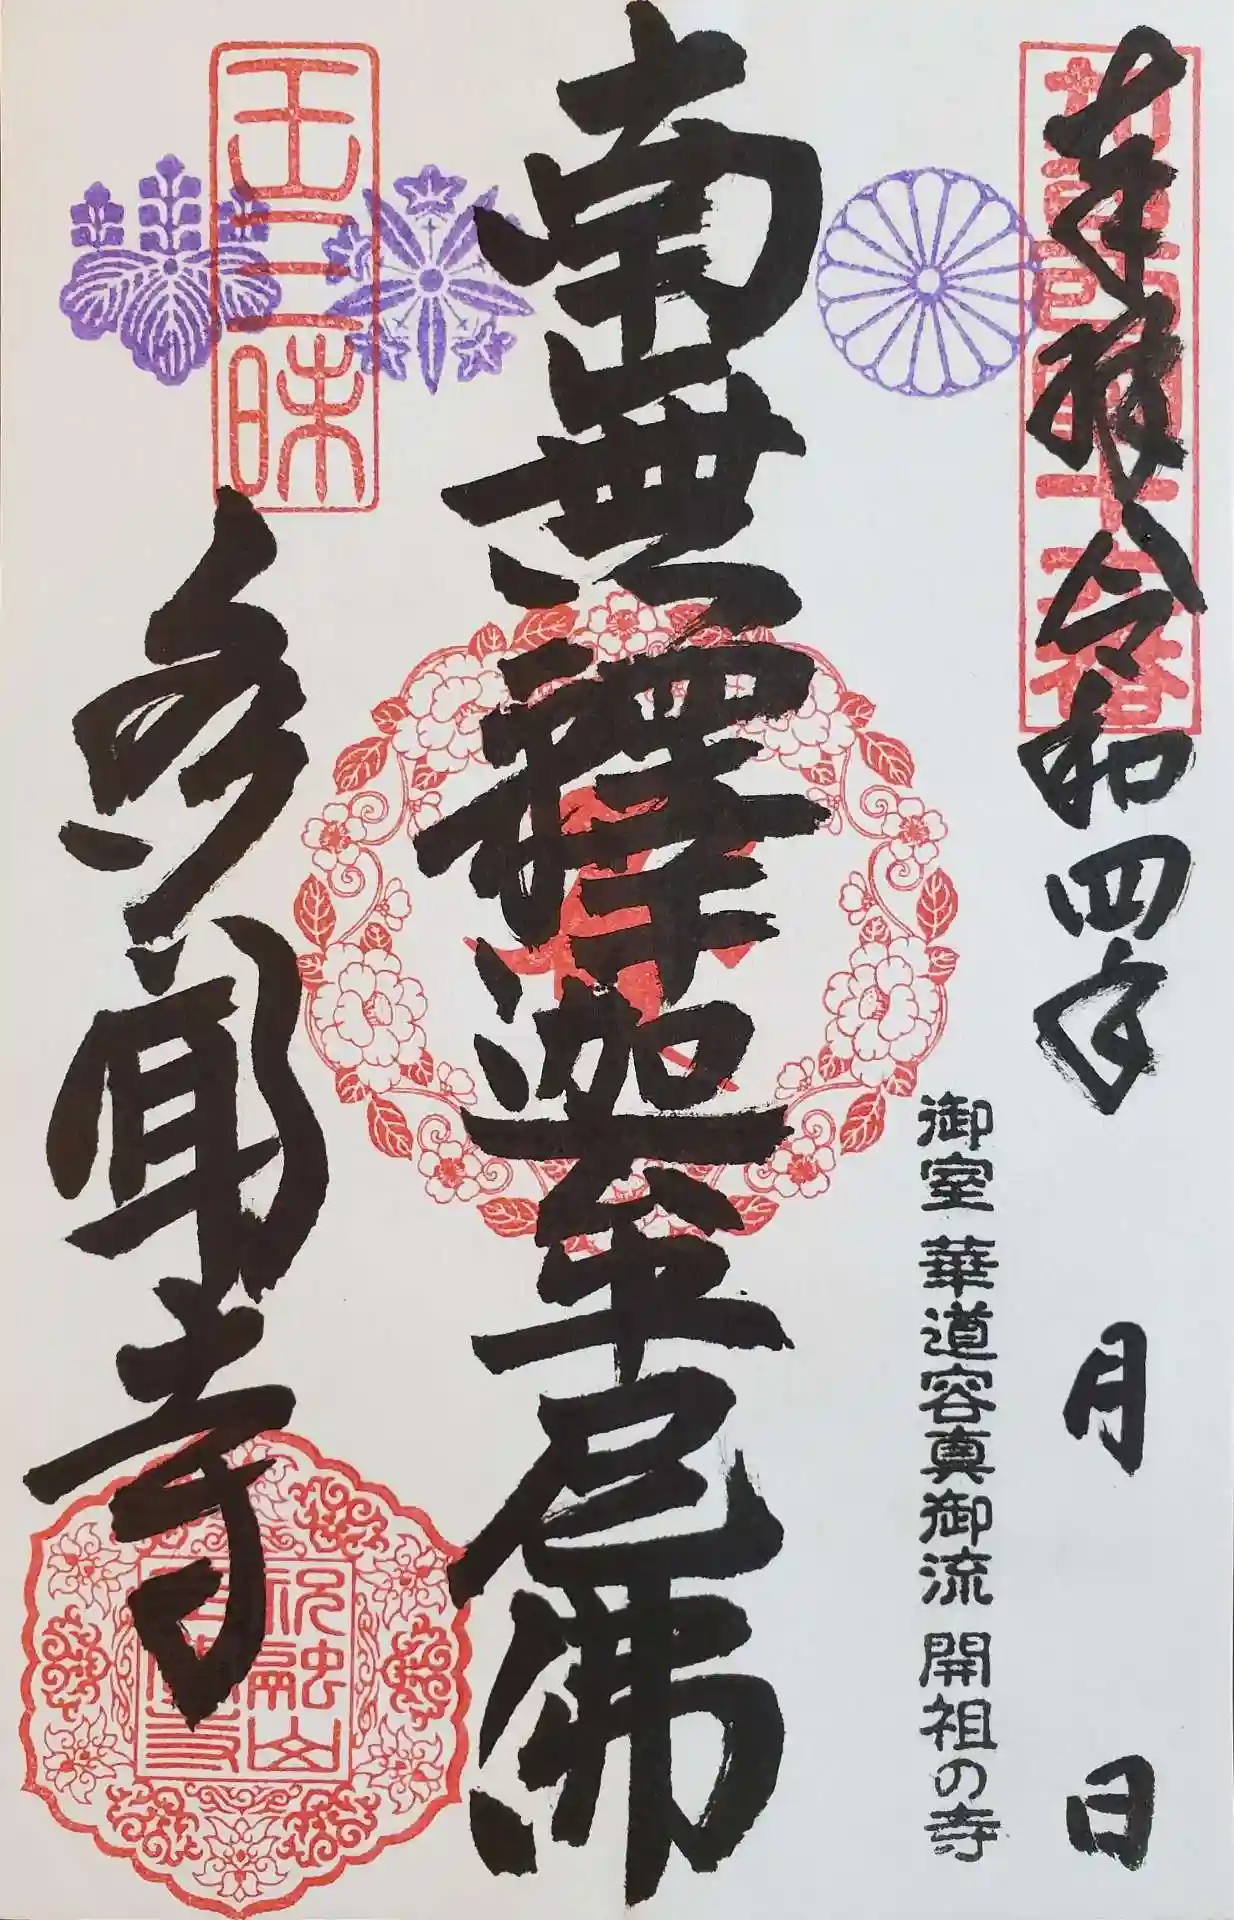 奉拝 令和四年 月 日
御室 華道容真御流 開祖の寺
南無釋迦牟尼佛
王三昧
多聞寺
祝融山